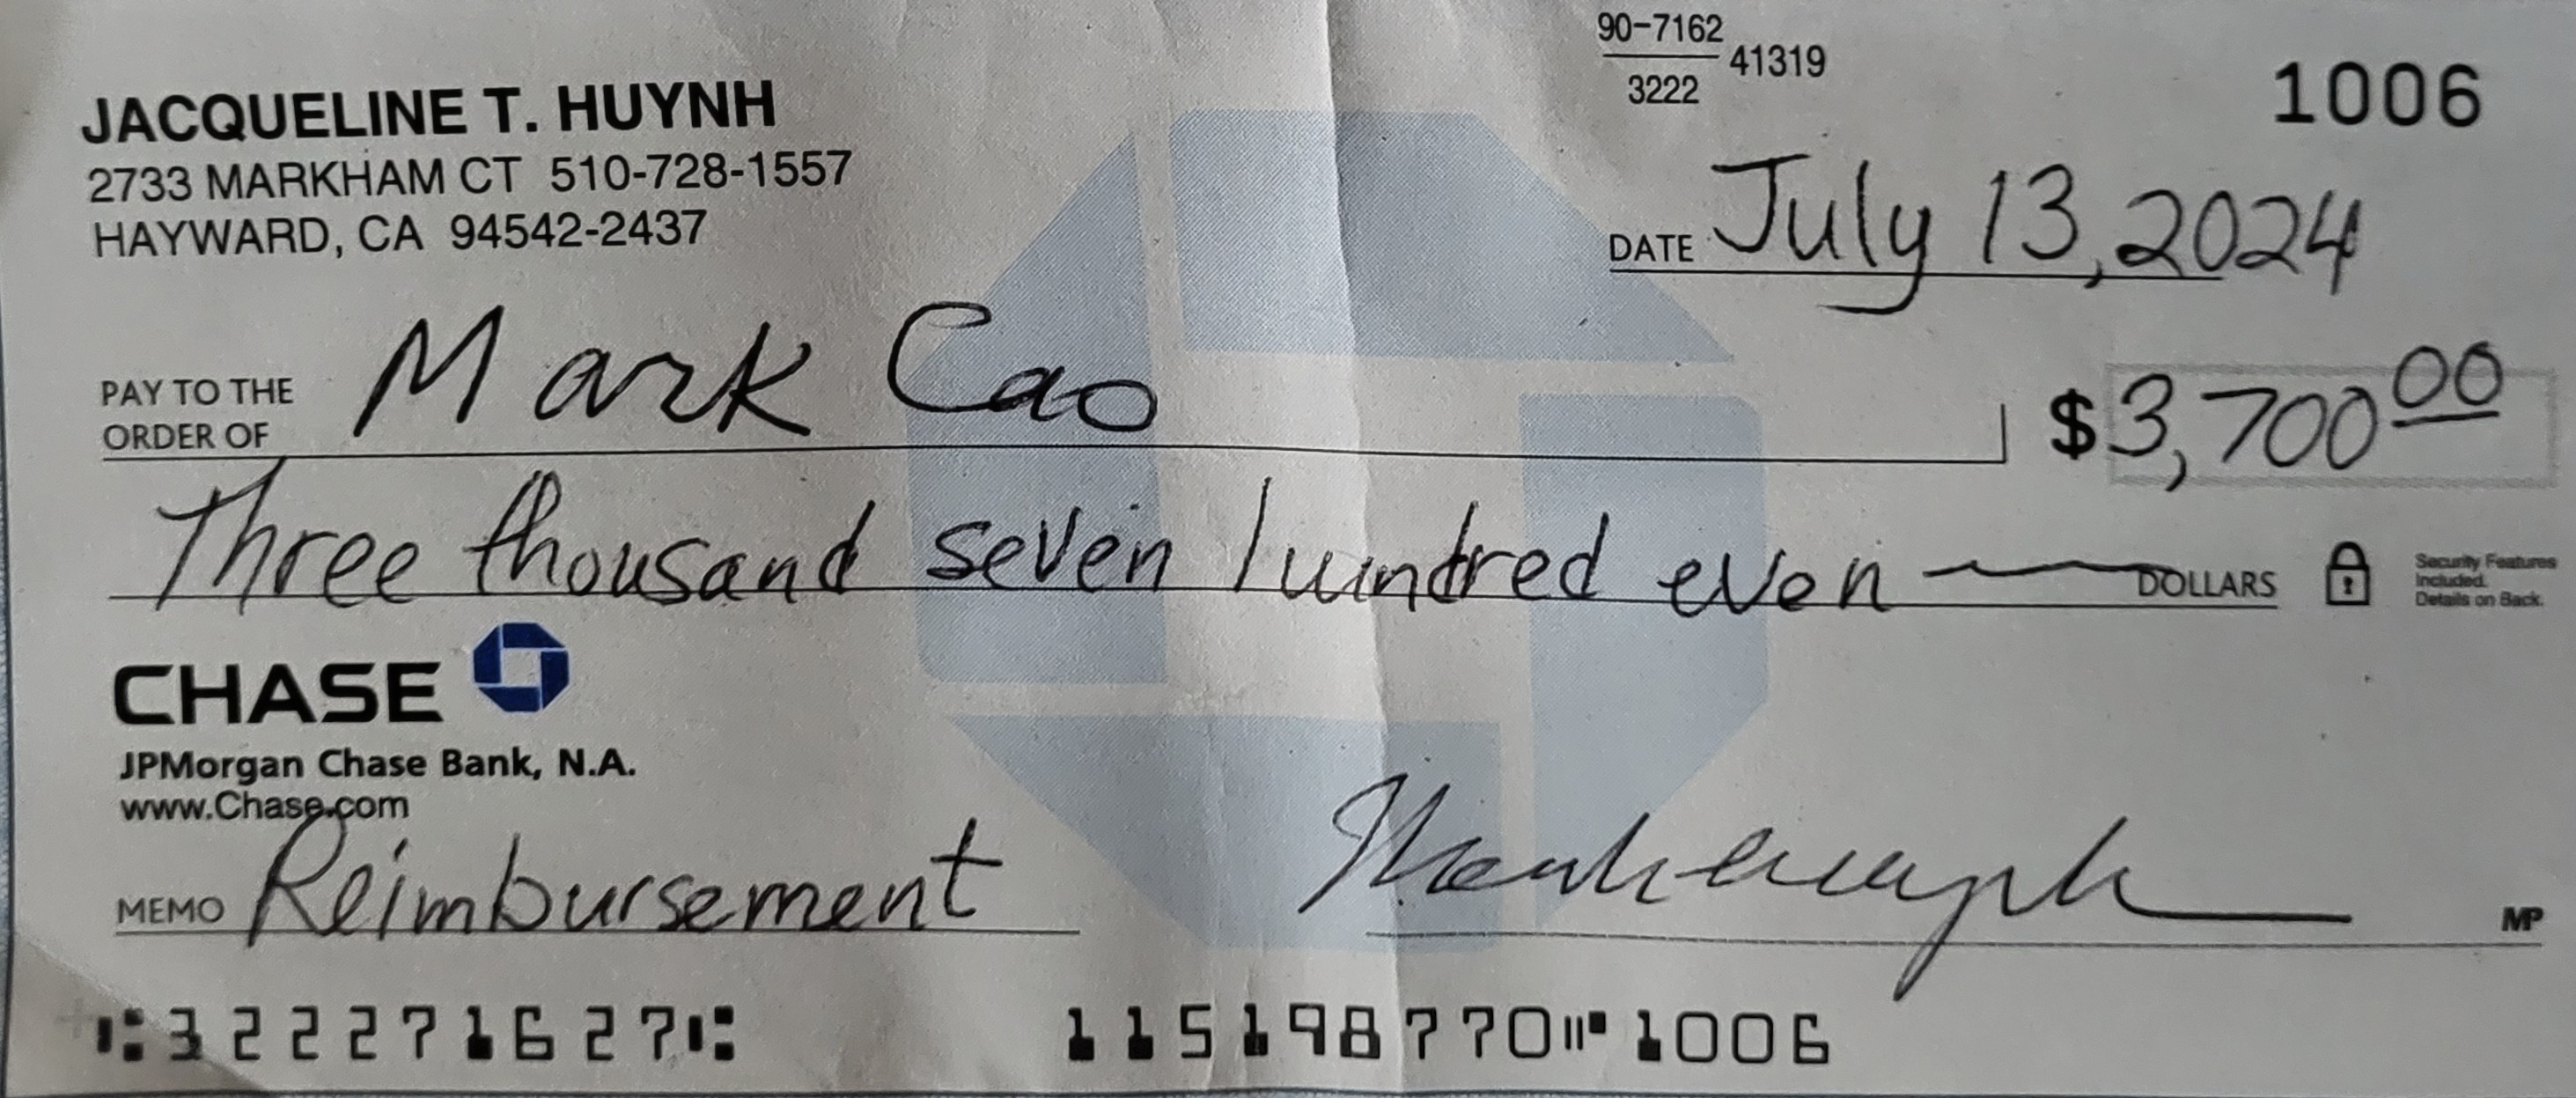 90-7162
3222 41319
1006
JACQUELINE T. HUYNH
2733 MARKHAM CT 510-728-1557
HAYWARD, CA 94542-2437
DATE July 13, 2024
PAY TO THE
ORDER OF Mark Cao $ 3,700 00
Three thousand seven hundred even DOLLARS
Security Features
Included.
Details on Back.
CHASE
JPMorgan Chase Bank, N.A.
www.Chase.com
MEMO Reimbursement MP
⑆322271627⑆ 115198770⑈ 1006